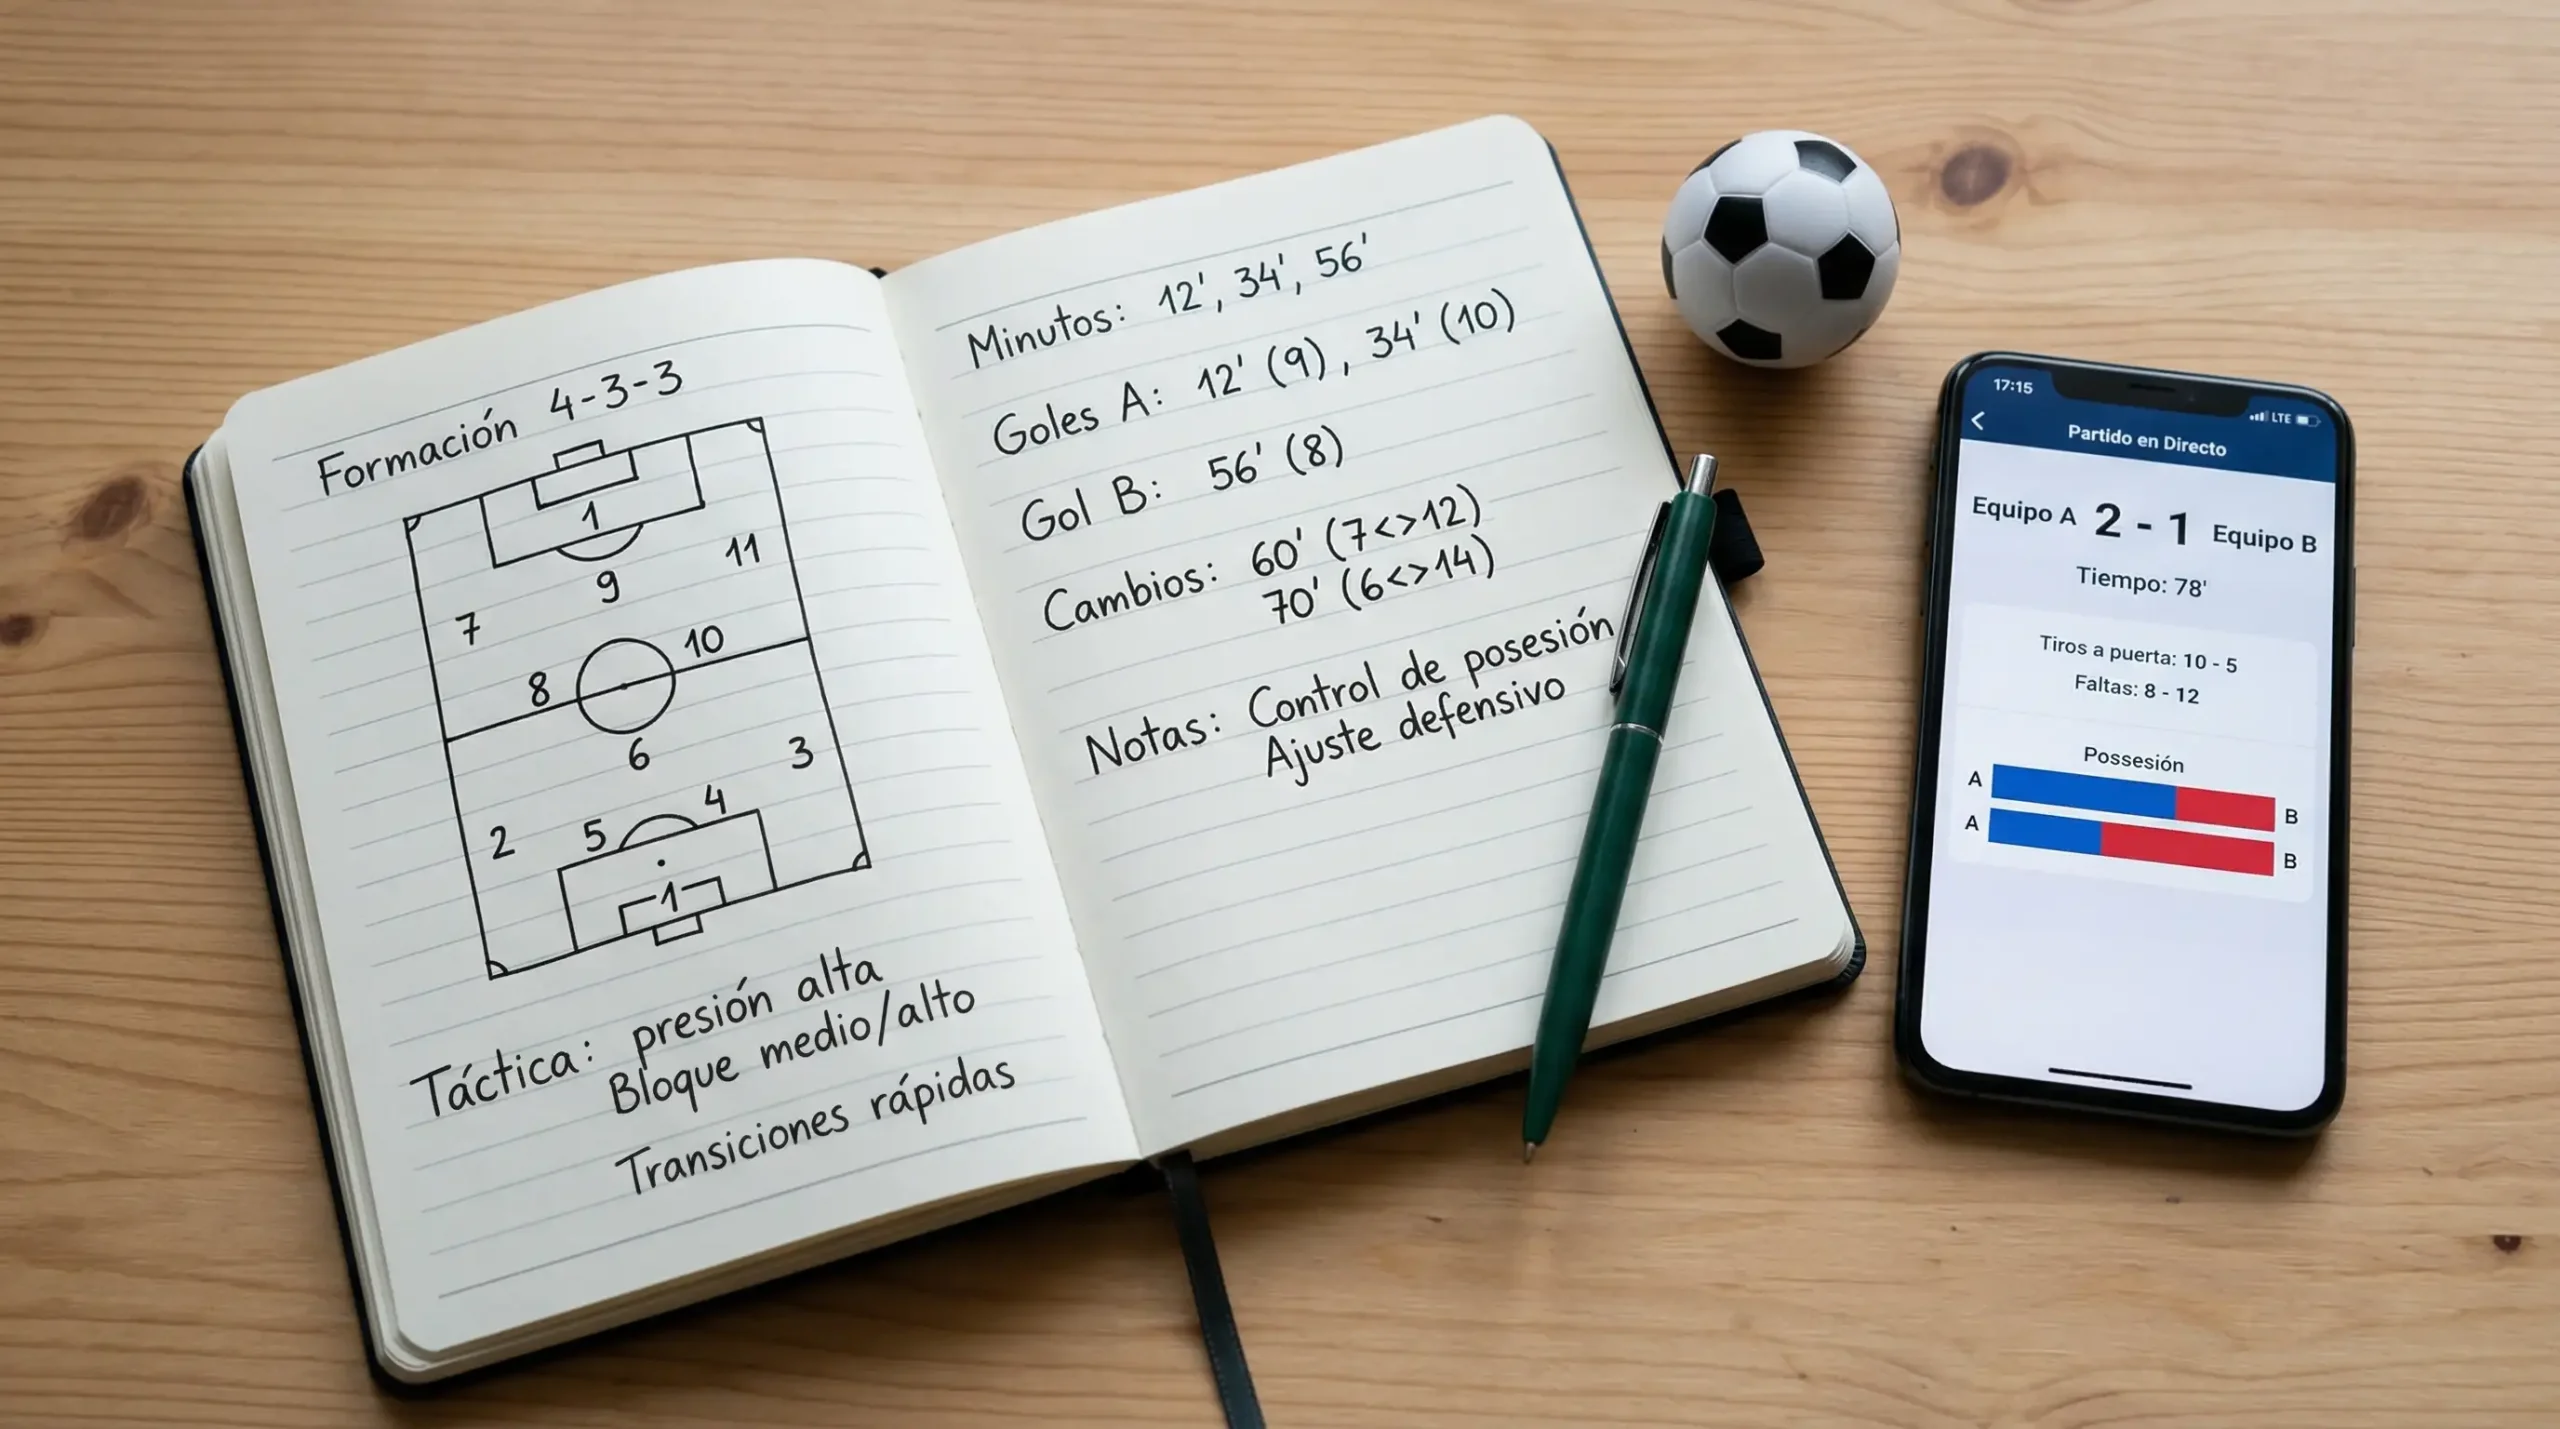 Formación 4-3-3
1
11
9
7
10
8
6
3
4
5
2
1
Táctica: presión alta
Bloque medio/alto
Transiciones rápidas
Minutos: 12', 34', 56'
Goles A: 12' (9), 34' (10)
Gol B: 56' (8)
Cambios: 60' (7<>12)
70' (6<>14)
Notas: Control de posesión
Ajuste defensivo
17:15
LTE
Partido en Directo
Equipo A 2 - 1 Equipo B
Tiempo: 78'
Tiros a puerta: 10 - 5
Faltas: 8 - 12
Possesión
A B
A B